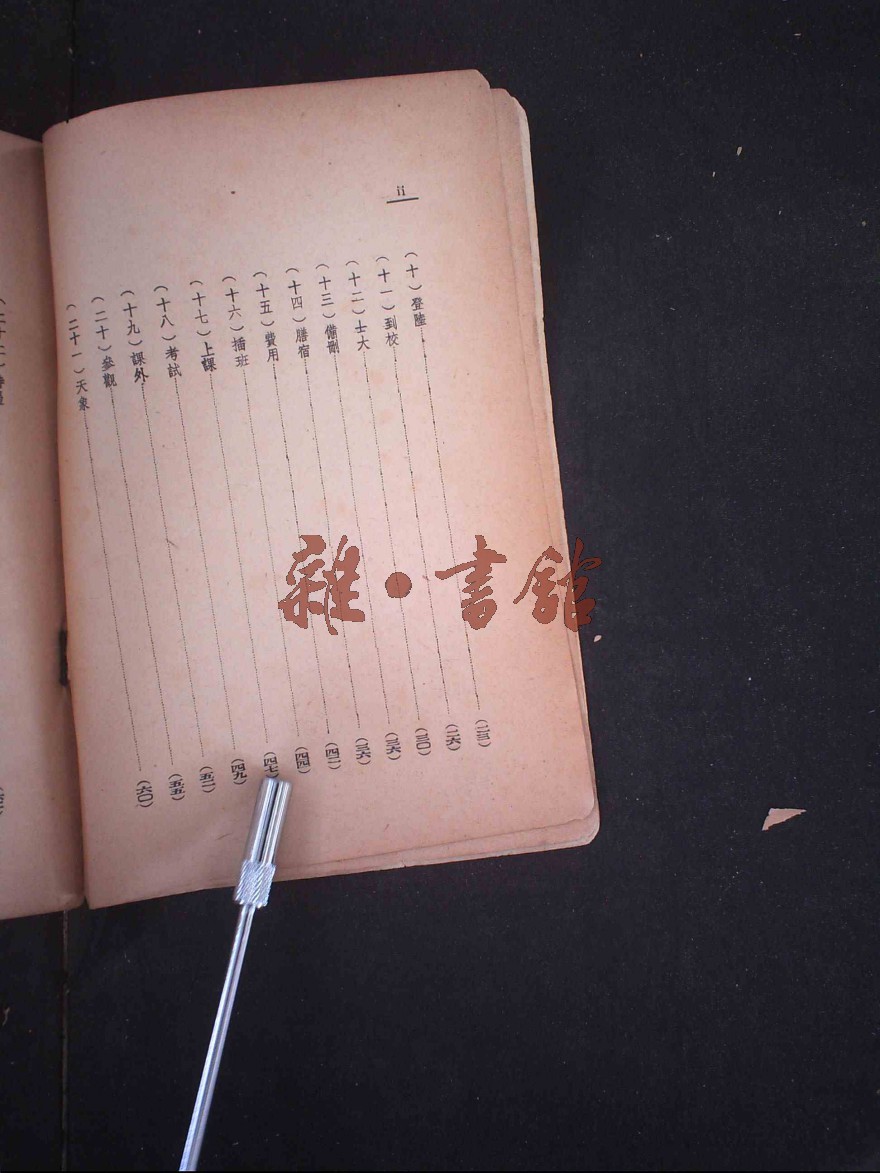 ii
(十)登陸……(二三)
(十一)到校……(二六)
(十二)士大……(三〇)
(十三)備刪……(三六)
(十四)膳宿……(三六)
(十五)費用……(四二)
(十六)插班……(四四)
(十七)上課……(四七)
(十八)考試……(四九)
(十九)課外……(五二)
(二十)參觀……(五五)
(二十一)天象……(六〇)
雜·書館